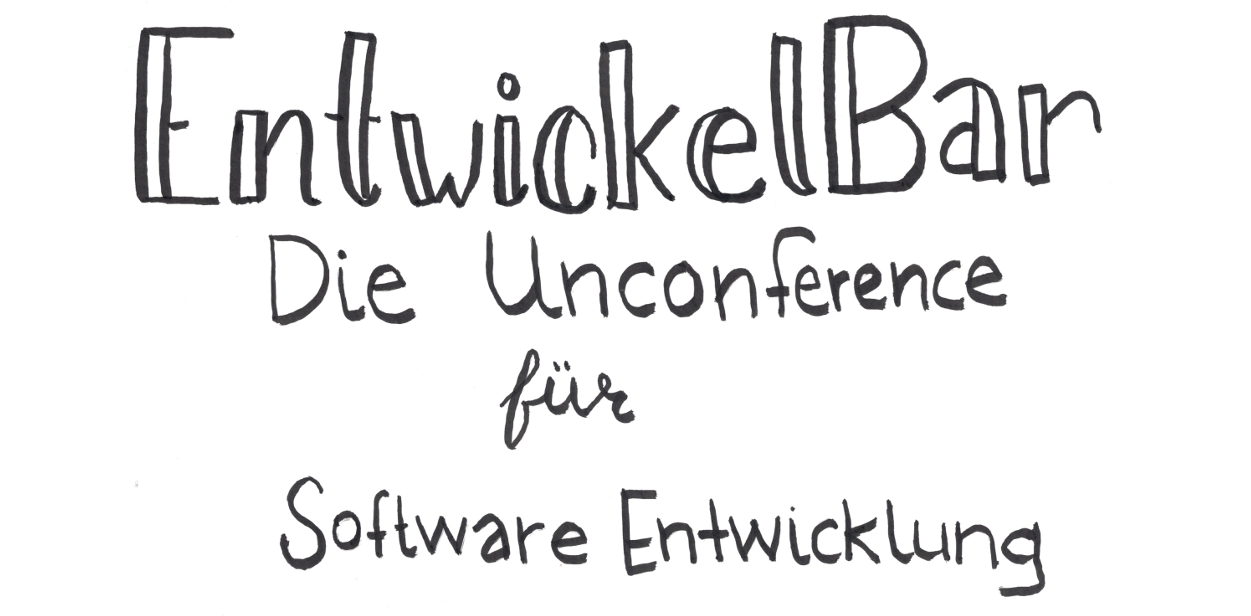 EntwickelBar
Die Unconference
für
Software Entwicklung